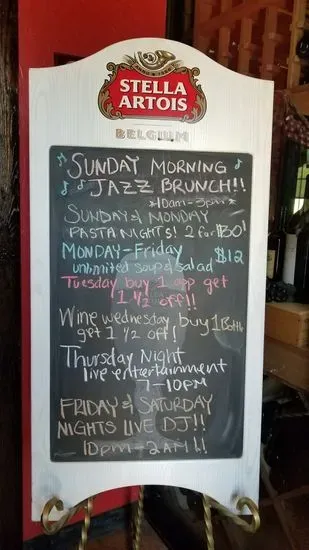 STELLA
ARTOIS
BELGIUM
SUNDAY MORNING
JAZZ BRUNCH!!
*10am-3pm*
SUNDAY & MONDAY
PASTA NIGHTS! 2 for $30!
MONDAY-Friday $12
unlimited soup & salad
Tuesday buy 1 app get
1 1/2 off!!
Wine wednesday buy 1 Bottle
get 1 1/2 off!
Thursday Night
live entertainment
7-10pm
FRIDAY & SATURDAY
NIGHTS LIVE DJ!!
10pm-2AM!!